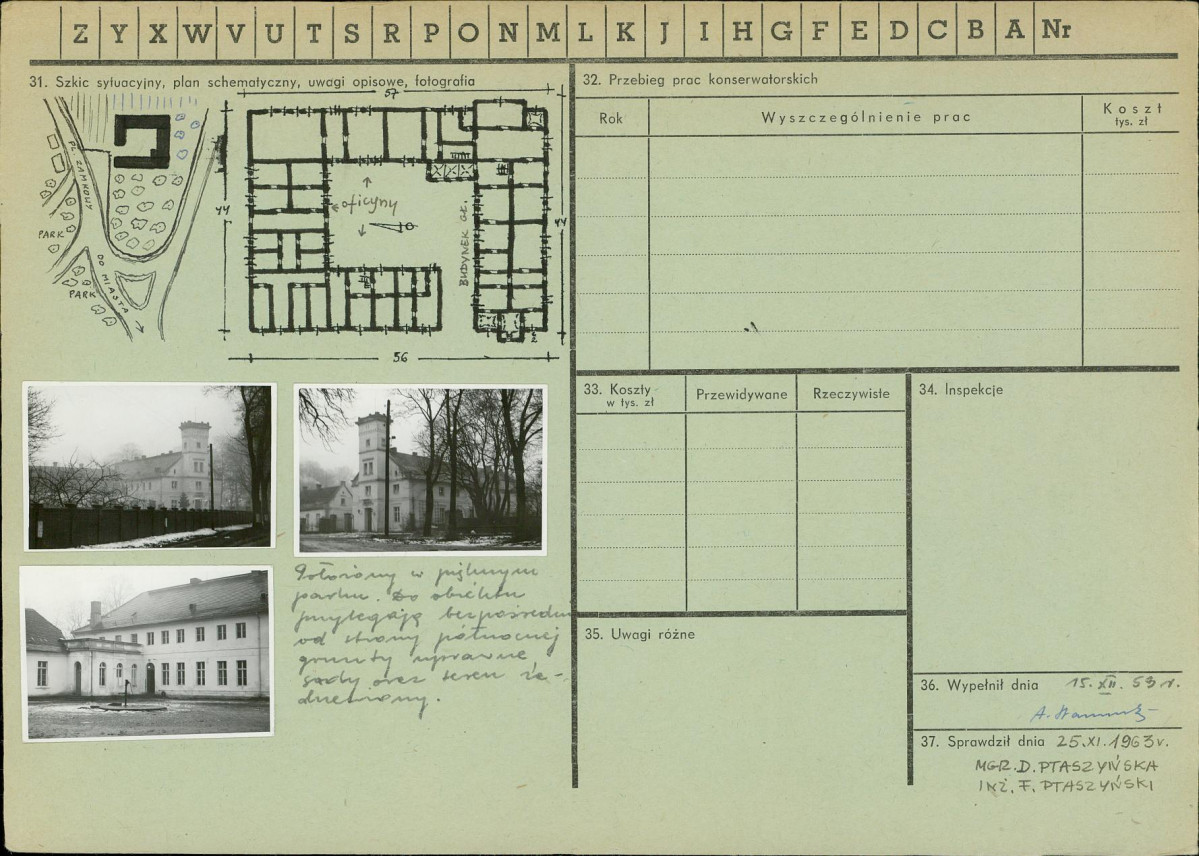 Z Y X W V U T S R P O N M L K J I H G F E D C B A Nr
31. Szkic sytuacyjny, plan schematyczny, uwagi opisowe, fotografia
57
PL. ZAMKOWY
PARK
PARK
DO MIASTA
44
oficyny
BUDYNEK GŁ.
44
56
Położony w pięknym
parku. Do obiektu
przylegają bezpośrednio
od strony północnej
grunty uprawne,
sady oraz teren za-
drzewiony.
32. Przebieg prac konserwatorskich
Rok
Wyszczególnienie prac
Koszt
tys. zł
33. Koszty
w tys. zł
Przewidywane
Rzeczywiste
34. Inspekcje
35. Uwagi różne
36. Wypełnił dnia 15. XII. 59 r.
37. Sprawdził dnia 25.XI.1963r.
MGR. D. PTASZYŃSKA
INŻ. F. PTASZYŃSKI